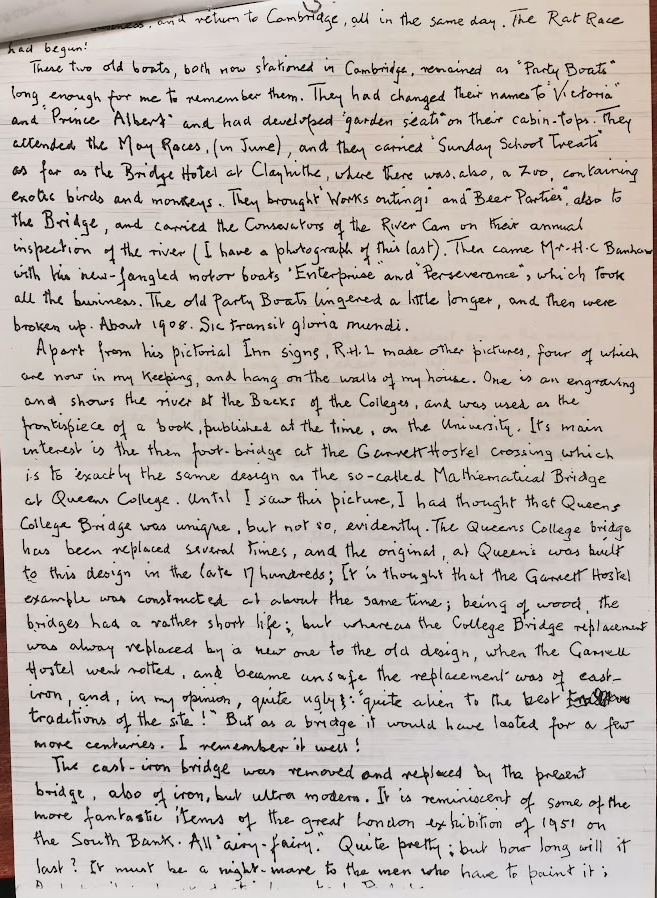 and return to Cambridge, all in the same day. The Rat Race
had begun!
These two old boats, both now stationed in Cambridge, remained as "Party Boats"
long enough for me to remember them. They had changed their names to "Victoria"
and "Prince Albert" and had developed "garden seats" on their cabin-tops. They
attended the May Races, (in June), and they carried "Sunday School Treats"
as far as the Bridge Hotel at Clayhithe, where there was, also, a Zoo, containing
exotic birds and monkeys. They brought "Works outings" and "Beer Parties", also to
the Bridge, and carried the Consevators of the River Cam on their annual
inspection of the river (I have a photograph of this last). Then came Mr. H.C Banham
with his new-fangled motor boats "Enterprise" and "Perseverance", which took
all the business. The old Party Boats lingered a little longer, and then were
broken up. About 1908. Sic transit gloria mundi.
Apart from his pictorial Inn signs, R.H.L made other pictures, four of which
are now in my keeping, and hang on the walls of my house. One is an engraving
and shows the river at the Backs of the Colleges, and was used as the
frontispiece of a book, published at the time, on the University. Its main
interest is the then foot-bridge at the Garrett Hostel crossing which
is to exactly the same design as the so-called Mathematical Bridge
at Queens College. Until I saw this picture, I had thought that Queens
College Bridge was unique, but not so, evidently. The Queens College bridge
has been replaced several times, and the original, at Queen's was built
to this design in the late 17 hundreds; It is thought that the Garrett Hostel
example was constructed at about the same time; being of wood, the
bridges had a rather short life; but whereas the College Bridge replacement
was alway replaced by a new one to the old design, when the Garrett
Hostel went rotted, and became unsafe the replacement was of cast-
iron, and, in my opinion, quite ugly: "quite alien to the best
traditions of the site!" But as a bridge it would have lasted for a few
more centuries. I remember it well!
The cast-iron bridge was removed and replaced by the present
bridge, also of iron, but ultra modern. It is reminiscent of some of the
more fantastic items of the great London exhibition of 1951 on
the South Bank. All "airy-fairy." Quite pretty; but how long will it
last? It must be a night-mare to the men who have to paint it;